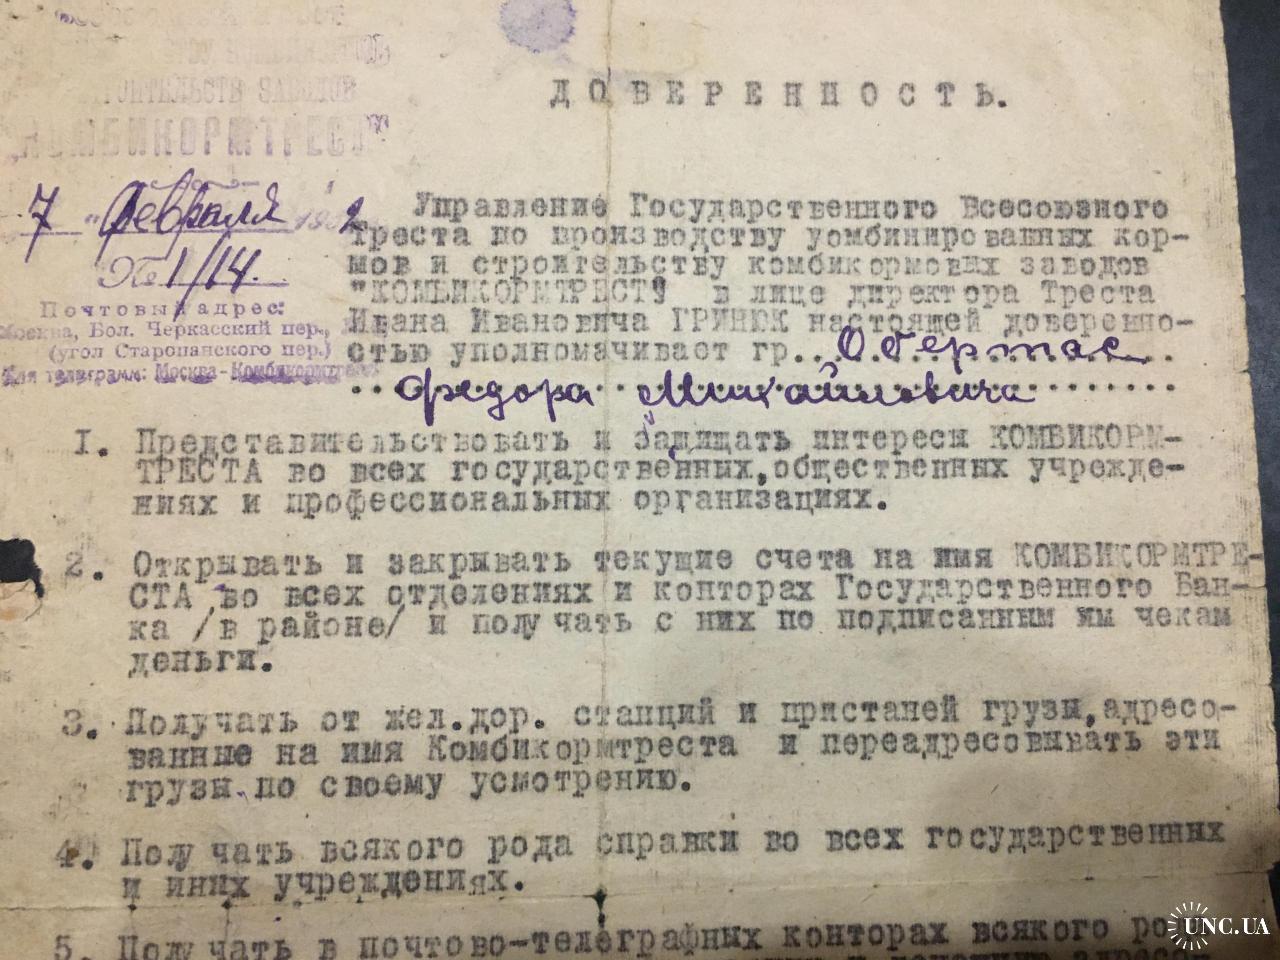 СТРОИТЕЛЬСТВ ЗАВОДОВ
„КОМБИКОРМТРЕСТ"
7 " Февраля 1932
№ 1/14.
Почтовый адрес:
Москва, Бол. Черкасский пер.,
(угол Старопанского пер.)
Для телеграмм: Москва-Комбикормтрест
ДОВЕРЕННОСТЬ.
Управление Государственного Всесоюзного
Треста по производству уомбинированных кор-
мов и строительству комбикормових заводов
"КОМБИКОРМТРЕСТ" в лице директора Треста
Ивана Ивановича ГРИНЮК настоящей доверенно-
стью уполномачивает гр...Обертас..
..Федора Михайловича
1. Представительствовать и защищать интересы КОМБИКОРМ-
ТРЕСТА во всех государственных,общественных учрежде-
ниях и профессиональных организациях.
2. Открывать и закрывать текущие счета на имя КОМБИКОРМТРЕ-
СТА во всех отделениях и конторах Государственного Бан-
ка /в районе/ и получать с них по подписанным им чекам
деньги.
3. Получать от жел.дор. станций и пристаней грузы,адресо-
ванные на имя Комбикормтреста и переадресовывать эти
грузы по своему усмотрению.
4. Получать всякого рода справки во всех государственных
и иних учреждениях.
5. Получать в почтово-телеграфных конторах всякого ро
UNC.UA